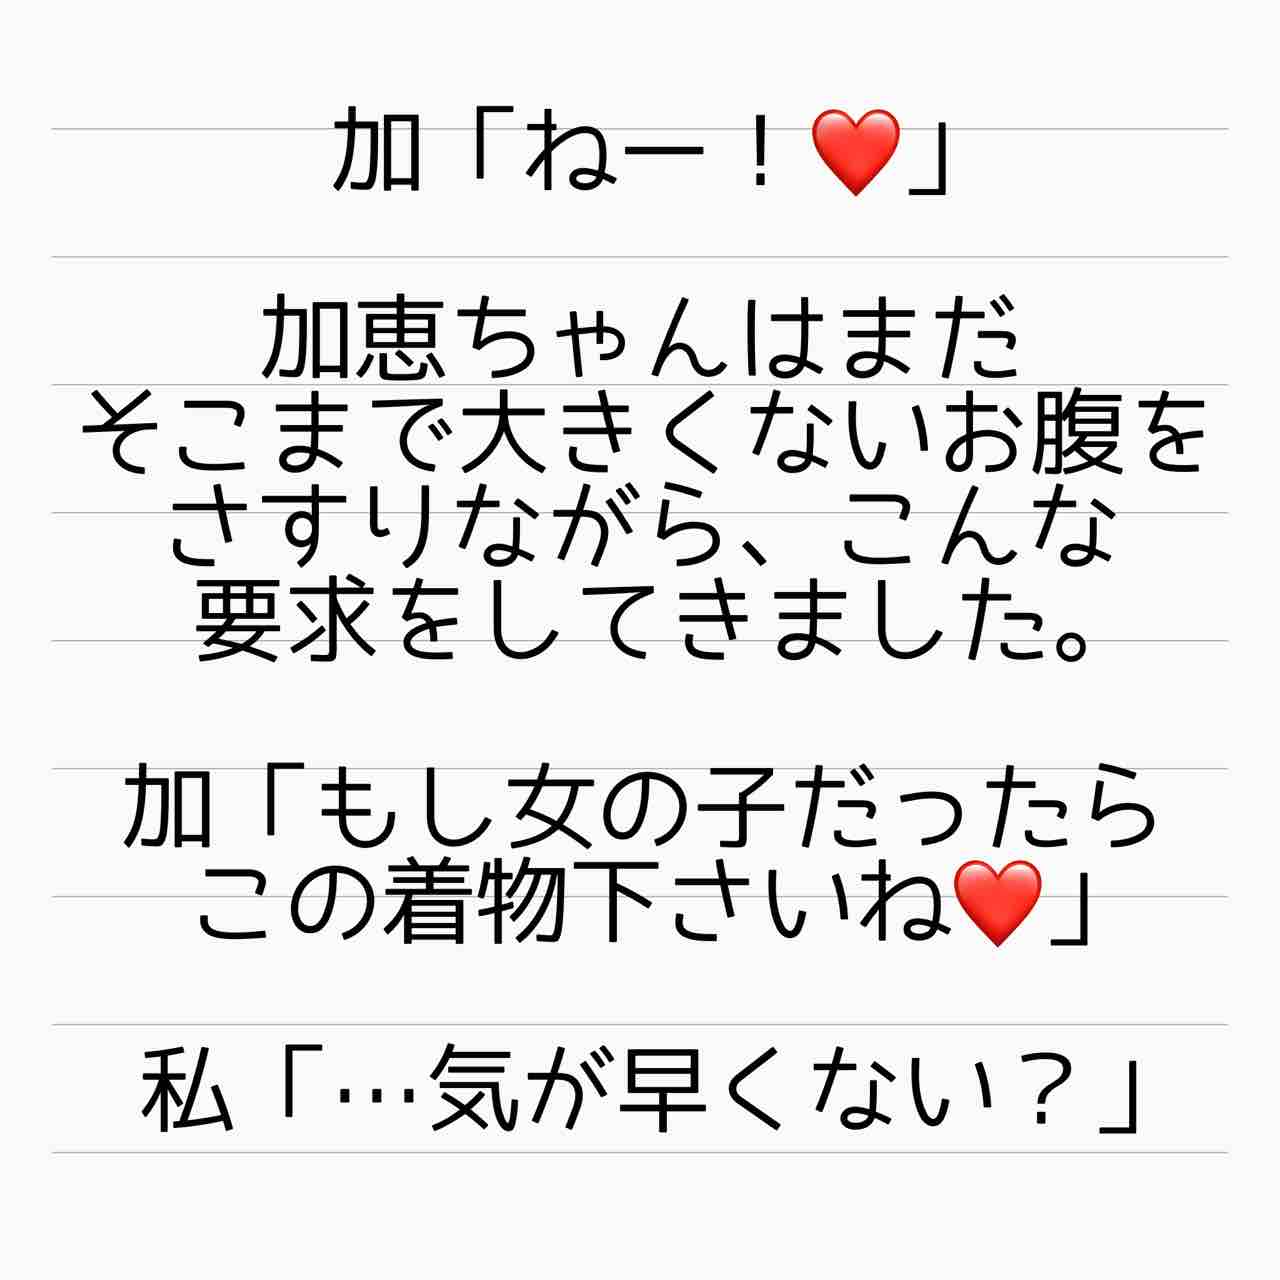 加「ねー！❤️」
加恵ちゃんはまだ
そこまで大きくないお腹を
さすりながら、こんな
要求をしてきました。
加「もし女の子だったら
この着物下さいね❤️」
私「…気が早くない？」